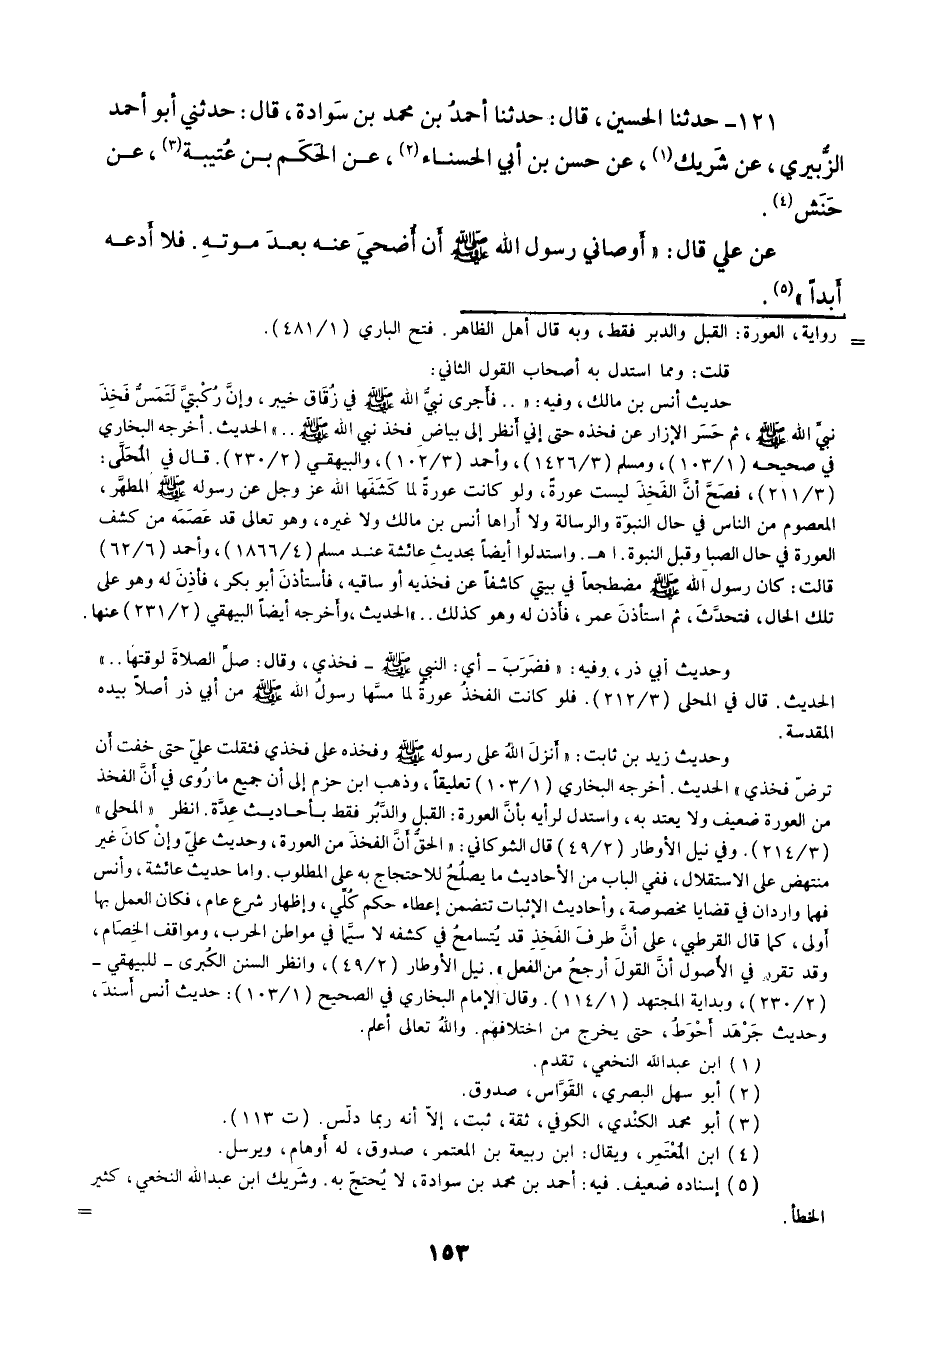 ١٢١- حدثنا الحسين ، قال : حدثنا أحمدُ بن محمد بن سَوادة ، قال : حدثني أبو أحمد
الزُّبيري ، عن شَريك(١) ، عن حسن بن أبي الحسناء(٢) ، عن الحَكَم بن عُتيبة(٣) ، عن
حَنَش(٤) .
عن علي قال : « أوصاني رسول الله ﷺ أن أُضحيَ عنه بعدَ موتهِ . فلا أدعه
أبداً »(٥) .
= رواية، العورة : القبل والدبر فقط، وبه قال أهل الظاهر . فتح الباري (٤٨١/١).
قلت : ومما استدل به أصحاب القول الثاني :
حديث أنس بن مالك، وفيه : « . . فأجرى نبيُّ الله ﷺ في زُقاق خيبر ، وإنَّ رُكْبتيَّ لَتَمَسُّ فَخِذَ
نبيِّ الله ﷺ ، ثم حَسَر الإزار عن فخذه حتى إني أنظر إلى بياض فخذ نبي الله ﷺ . . » الحديث . أخرجه البخاري
في صحيحه (١٠٣/١)، ومسلم (١٤٢٦/٣)، وأحمد (١٠٢/٣)، والبيهقي (٢٣٠/٢). قال في المُحَلَّى :
(٢١١/٣)، فصَحَّ أنَّ الفَخذَ ليست عورةً، ولو كانت عورةً لما كَشَفَها الله عز وجل عن رسوله ﷺ المطهَّر ،
المعصوم من الناس في حال النبوّة والرسالة ولا أراها أنس بن مالك ولا غيره، وهو تعالى قد عَصَمَه من كشف
العورة في حال الصبا وقبل النبوة . ا هـ . واستدلوا أيضاً بحديث عائشة عند مسلم (١٨٦٦/٤)، وأحمد (٦٢/٦)
قالت : كان رسول الله ﷺ مضطجعاً في بيتي كاشفاً عن فخذيه أو ساقيه ، فأستأذنَ أبو بكر ، فأذِنَ له وهو على
تلك الحال، فتحدَّثَ، ثم استأذنَ عمر، فأذن له وهو كذلك . . » الحديث ، وأخرجه أيضاً البيهقي (٢٣١/٢) عنها .
وحديث أبي ذر ، وفيه : « فضَرَبَ - أي : النبي ﷺ - فخذي ، وقال : صلِّ الصلاةَ لوقتها . . »
الحديث . قال في المحلى (٢١٢/٣). فلو كانت الفخذُ عورةً لما مسَّها رسولُ الله ﷺ من أبي ذر أصلاً بيده
المقدسة .
وحديث زيد بن ثابت : « أنزلَ اللهُ على رسوله ﷺ وفخذه على فخذي فثقلت عليّ حتى خفت أن
ترضّ فخذي » الحديث . أخرجه البخاري (١٠٣/١) تعليقاً، وذهب ابن حزم إلى أن جميع ما رُوى في أنَّ الفخذ
من العورة ضعيف ولا يعتد به ، واستدل لرأيه بأنَّ العورة : القبل والدُّبر فقط بأحاديث عِدَّة . انظر « المحلى »
(٢١٤/٣). وفي نيل الأوطار (٤٩/٢) قال الشوكاني : « الحقُّ أنَّ الفخذَ من العورة، وحديث عليّ وإنْ كانَ غير
منتهض على الاستقلال ، ففي الباب من الأحاديث ما يصلُحُ للاحتجاج به على المطلوب . واما حديث عائشة ، وأنس
فهما واردان في قضايا مخصوصة ، وأحاديث الإثبات تتضمن إعطاء حكم كُلّي ، وإظهار شرع عام ، فكان العمل بها
أولى ، كما قال القرطبي ، على أنَّ طرفَ الفَخذِ قد يُتسامحُ في كشفه لا سيَّما في مواطن الحرب، ومواقف الخِصَام،
وقد تقرر في الأصول أنَّ القولَ أرجحُ من الفعل » . نيل الأوطار (٤٩/٢)، وانظر السنن الكُبرى - للبيهقي -
(٢٣٠/٢)، وبداية المجتهد (١١٤/١). وقال الإمام البخاري في الصحيح (١٠٣/١) : حديث أنس أسندَ ،
وحديث جَرْهَد أحْوَطُ ، حتى يخرج من اختلافهم . واللهُ تعالى أعلم .
(١) ابن عبدالله النخعي، تقدم .
(٢) أبو سهل البصري، القَوَّاس، صدوق .
(٣) أبو محمد الكنْدي، الكوفي، ثقة، ثبت، إلاّ أنه ربما دلّس . (ت ١١٣).
(٤) ابن المُعْتَمِر ، ويقال : ابن ربيعة بن المعتمر، صدوق ، له أوهام ، ويرسل .
(٥) إسناده ضعيف . فيه : أحمد بن محمد بن سوادة ، لا يُحتجّ به . وشَريك ابن عبدالله النخعي ، كثير
الخطأ . =
١٥٣